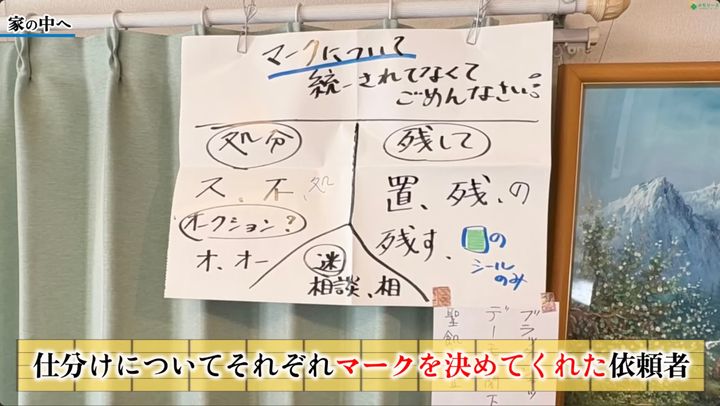 家の中へ
メモリーズ
マークについて
統一されてなくて
ごめんなさい!!
処分
残して
ス、不、処
置、残、の
オークション?
残す、
の
シール
のみ
オ、オー
迷
相談、相
仕分けについてそれぞれマークを決めてくれた依頼者